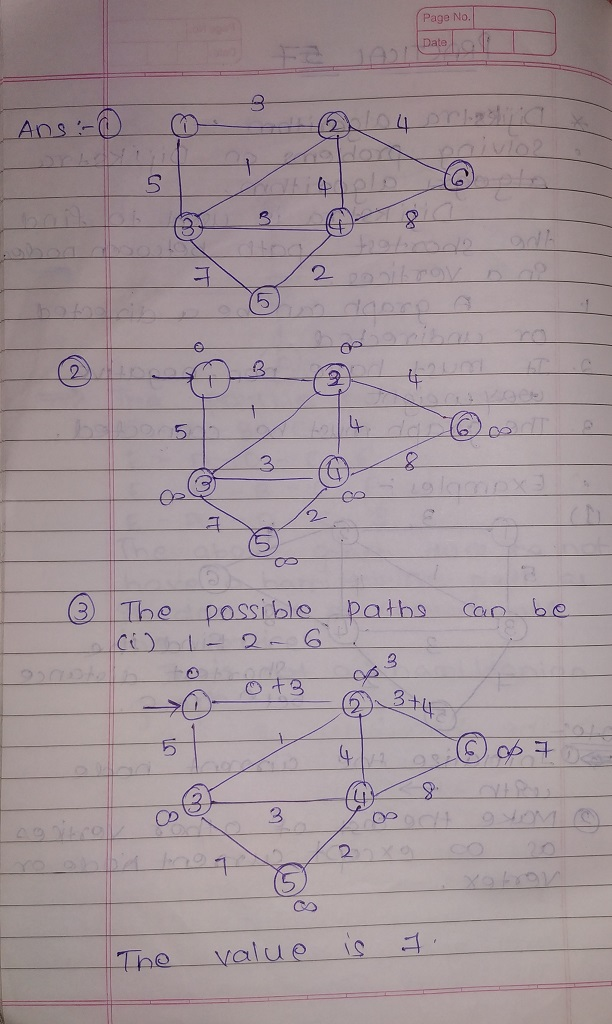 Page No.
Date
Ans :- ①
3
① ② 4
5 1 4 ⑥
③ 3 ④ 8
7 2
⑤
②
0 ∞
→ ① 3 ② 4
5 1 4 ⑥ ∞
③ 3 ④ 8
∞ ∞
7 2
⑤
∞
③ The possible paths can be
(i) 1 - 2 - 6
0 ∞ 3
→ ① 0+3 ② 3+4
5 1 4 ⑥ ∞ 7
③ 3 ④ 8
∞ ∞
7 2
⑤
∞
The value is 7.